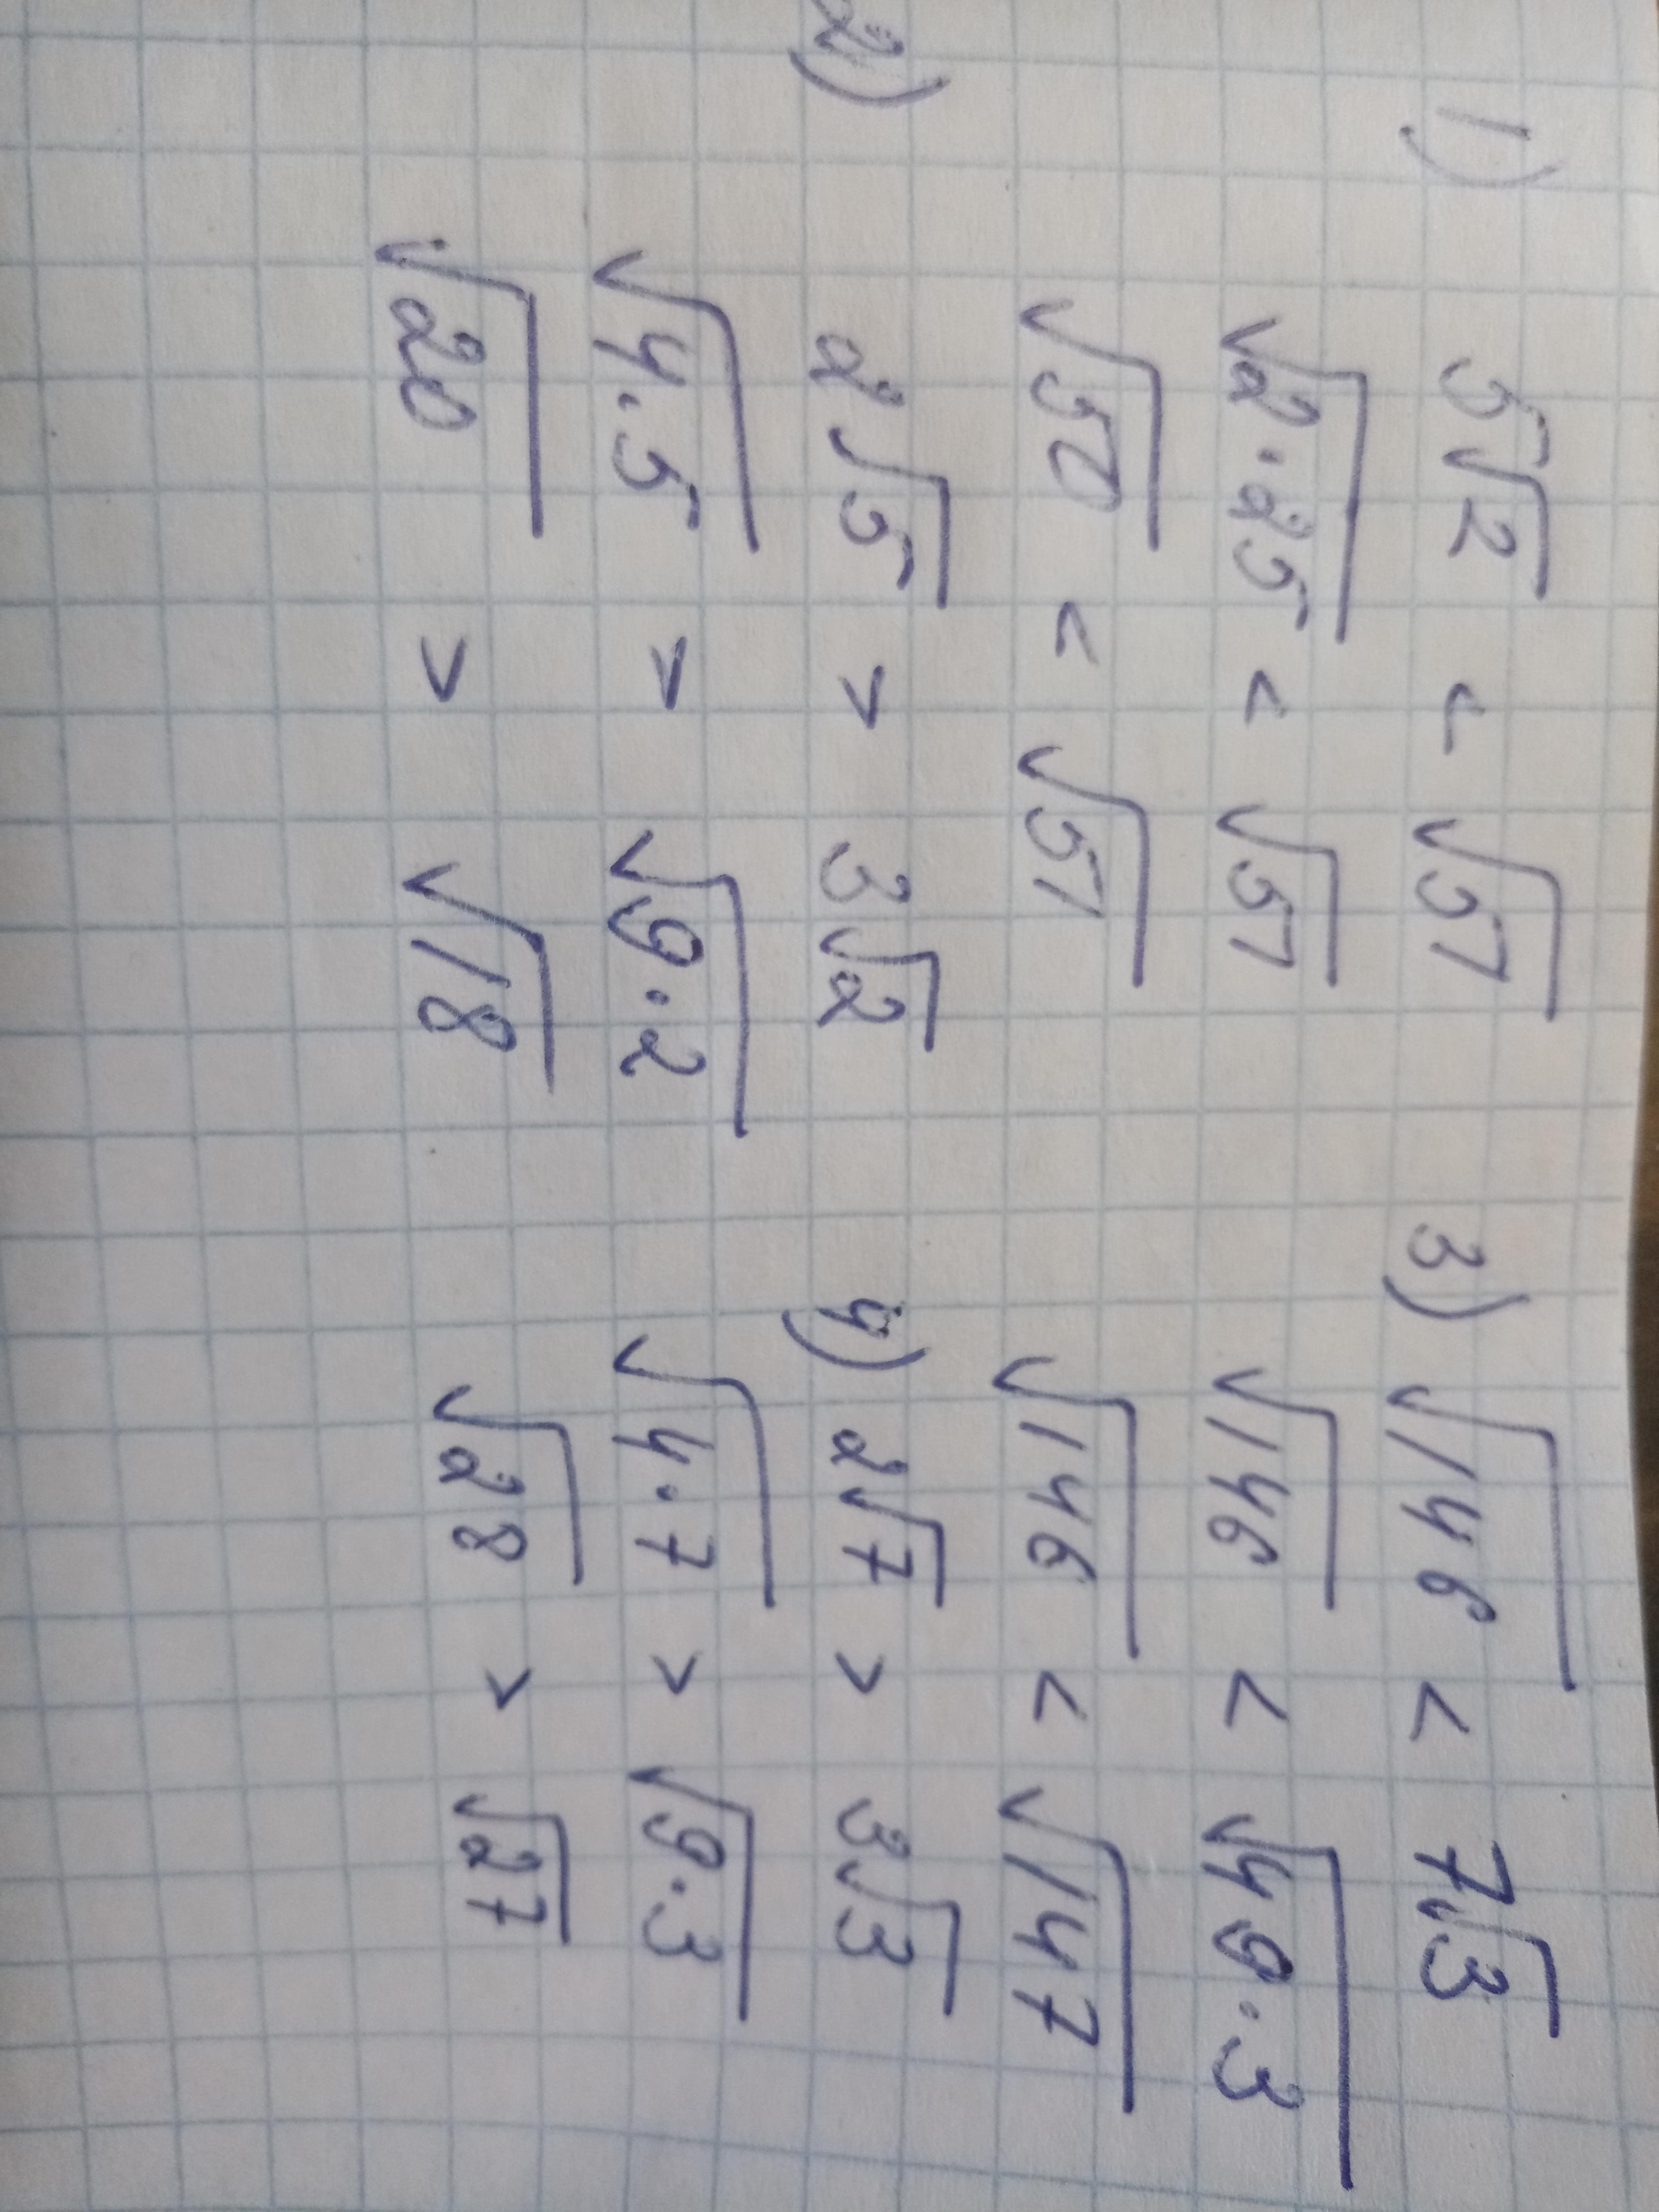 1) 5√2 < √57
√2·25 < √57
√50 < √57
2) 2√5 > 3√2
√4·5 > √9·2
√20 > √18
3) √146 < 7√3
√146 < √49·3
√146 < √147
4) 2√7 > 3√3
√4·7 > √9·3
√28 > √27